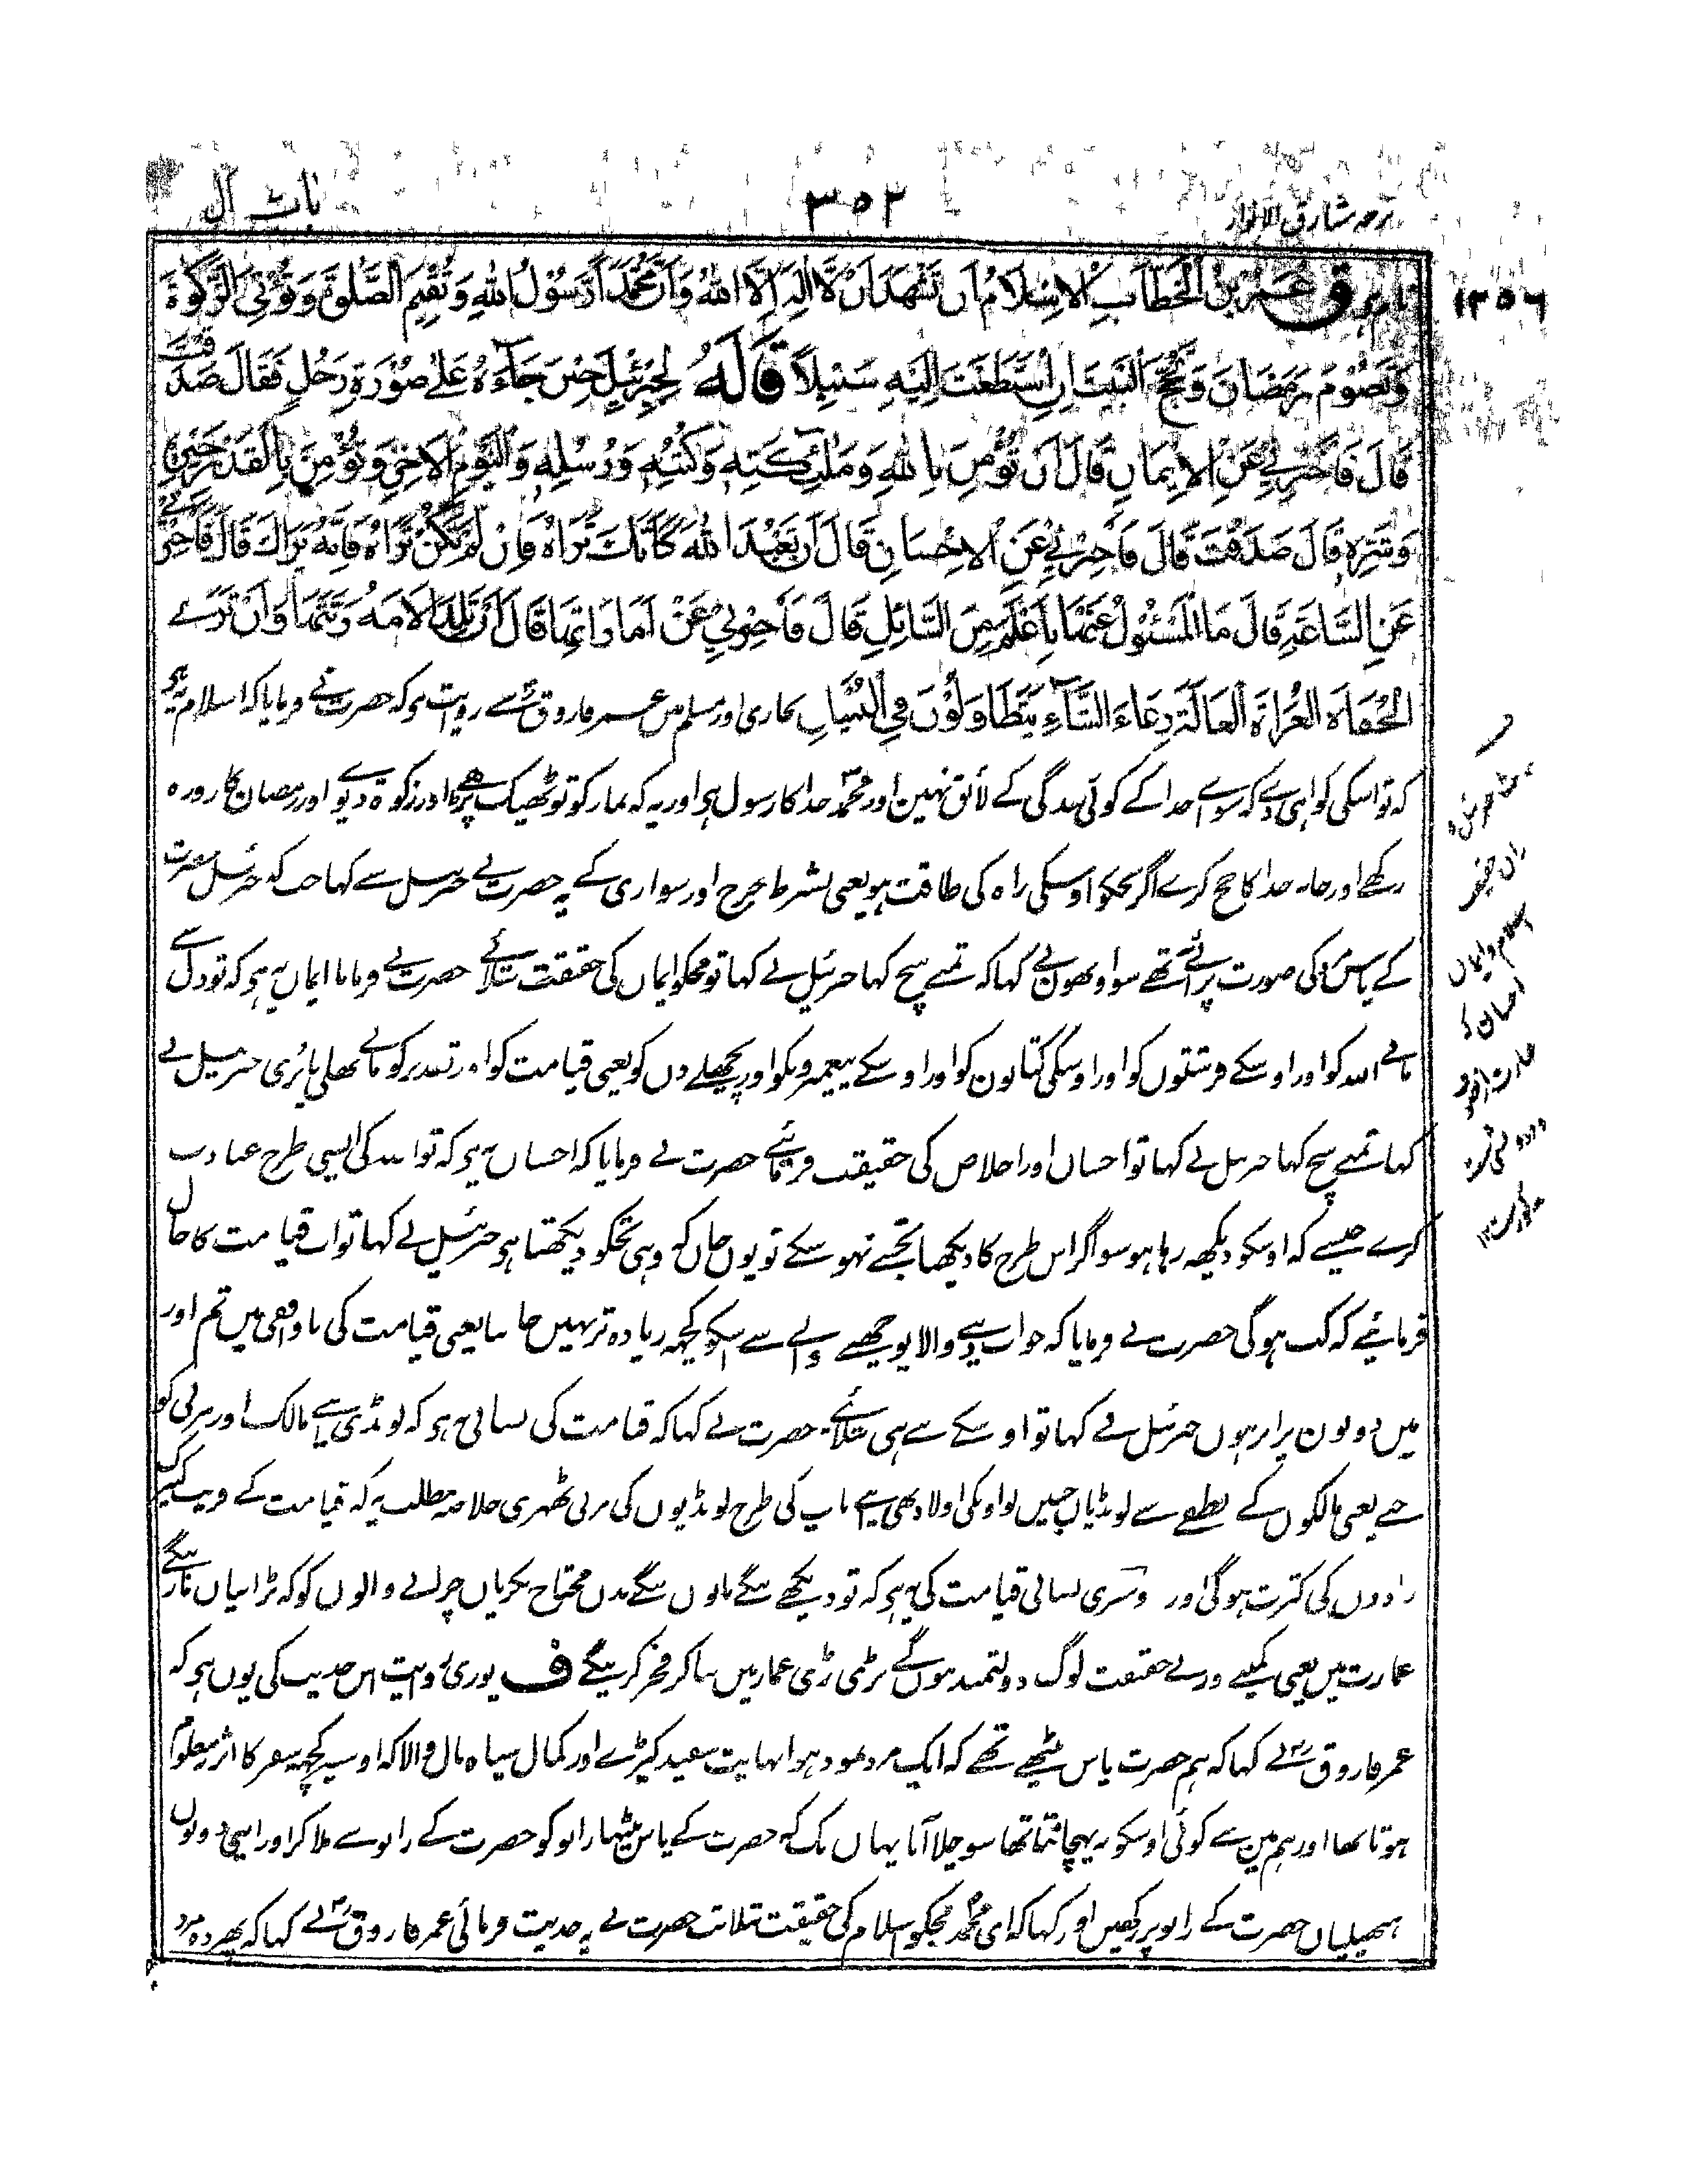 ترجمہ مشارق الانوار
٣٥٢
باب ال
١٣٥٦
ق عمر بن الخطاب الاسلام ان تشهد ان لا اله الا الله وان محمدا رسول الله وتقيم الصلوة وتؤتي الزكوة
وتصوم رمضان وتحج البيت ان استطعت اليه سبيلا قاله لجبرئيل حين جاءه على صورة رجل فقال صدقت
قال فاخبرني عن الايمان قال ان تؤمن بالله وملئكته وكتبه ورسله واليوم الاخر وتؤمن بالقدر خيره
وشره قال صدقت قال فاخبرني عن الاحسان قال ان تعبد الله كانك تراه فان لم تكن تراه فانه يراك قال فاخبرني
عن الساعة قال ما المسئول عنها باعلم من السائل قال فاخبرني عن اماراتها قال ان تلد الامة ربتها وان ترى
الحفاة العراة العالة رعاء الشاء يتطاولون في البنيان بخاری اور مسلم میں عمر فاروق سے روایت ہی کہ حضرت نے فرمایا کہ اسلام یہ ہی
کہ تو اسکی گواہی دے کہ سوای خدا کے کوئی بندگی کے لائق نہین اور محمد خدا کا رسول ہی اور یہ کہ نماز کو تو ٹھیک پڑھے اور زکوة دیوے اور رمضان کا روزہ
رکھے اور خانہ خدا کا حج کرے اگر تجکو اوسکی راہ کی طاقت ہو یعنی بشرط خرچ اور سواری کے یہ حضرت نے جبرئیل سے کہا جب کہ جبرئیل حضرت
کے پاس کی صورت پر آئے تھے سو اونھون نے کہا کہ تمنے سچ کہا جبرئیل نے کہا تو مجکو ایمان کی حقیقت بتلائے حضرت نے فرمایا ایمان یہ ہی کہ تو دل سے
مانے اللہ کو اور اوسکے فرشتوں کو اور اوسکی کتابون کو اور اوسکے پیغمبرونکو اور پچھلے دن کو یعنی قیامت کو اور تقدیر کو مانے بھلی یا بُری جبرئیل نے
کہا تمنے سچ کہا جبرئیل نے کہا تو احسان اور اخلاص کی حقیقت فرمائے حضرت نے فرمایا کہ احسان یہ ہی کہ تو اللہ کی ایسی طرح عبادت
کرے جیسے کہ اوسکو دیکھ رہا ہو سو اگر اس طرح کا دیکھنا تجھسے نہو سکے تو یوں جان کہ وہی تجکو دیکھتا ہی جبرئیل نے کہا تو اب قیامت کا حال
فرمائیے کہ کب ہوگی حضرت نے فرمایا کہ جواب دینے والا پوچھنے والے سے اسکو کچھ زیادہ تر نہیں جانتا یعنی قیامت کی ناواقفی میں تم اور
میں دونون برابر ہوں جبرئیل نے کہا تو اوسکے پتے ہی بتلائے حضرت نے کہا کہ قیامت کی نشانی یہ ہی کہ لونڈی اپنے مالک اور مربی کو
جنے یعنی مالکوں کے نطفے سے لونڈیاں جنیں تو اونکی اولاد بھی اپنے باپ کی طرح لونڈیوں کی مربی ٹھہری خلاصہ مطلب یہ کہ قیامت کے قریب کنیزک
زادوں کی کثرت ہوگی اور دوسری نشانی قیامت کی یہ ہی کہ تو دیکھے ننگے پانوں ننگے بدن محتاج بکریاں چرانے والوں کو کہ بڑائیاں مارینگے
عمارت میں یعنی کمینے اور بے حقیقت لوگ دولتمند ہونگے بڑی بڑی عمارتیں بنا کر فخر کرینگے ف پوری روایت اس حدیث کی یوں ہی کہ
عمر فاروق نے کہا کہ ہم حضرت پاس بیٹھے تھے کہ ایک مرد نمود ہوا نہایت سفید کپڑے اور کمال سیاہ بال والا کہ اوسپر کچھ سفر کا اثر معلوم
ہوتا تھا اور ہم مین سے کوئی اوسکو نہ پہچانتا تھا سو چلا آیا یہاں تک کہ حضرت کے پاس بیٹھا زانو کو حضرت کے زانو سے ملا کر اور اپنی دونوں
ہتھیلیاں حضرت کے زانو پر رکھیں اور کہا کہ ای محمد مجکو اسلام کی حقیقت بتلائے حضرت نے یہ حدیث فرمائی عمر فاروق نے کہا کہ پھر وہ مرد
اسلام و ایمان
احسان